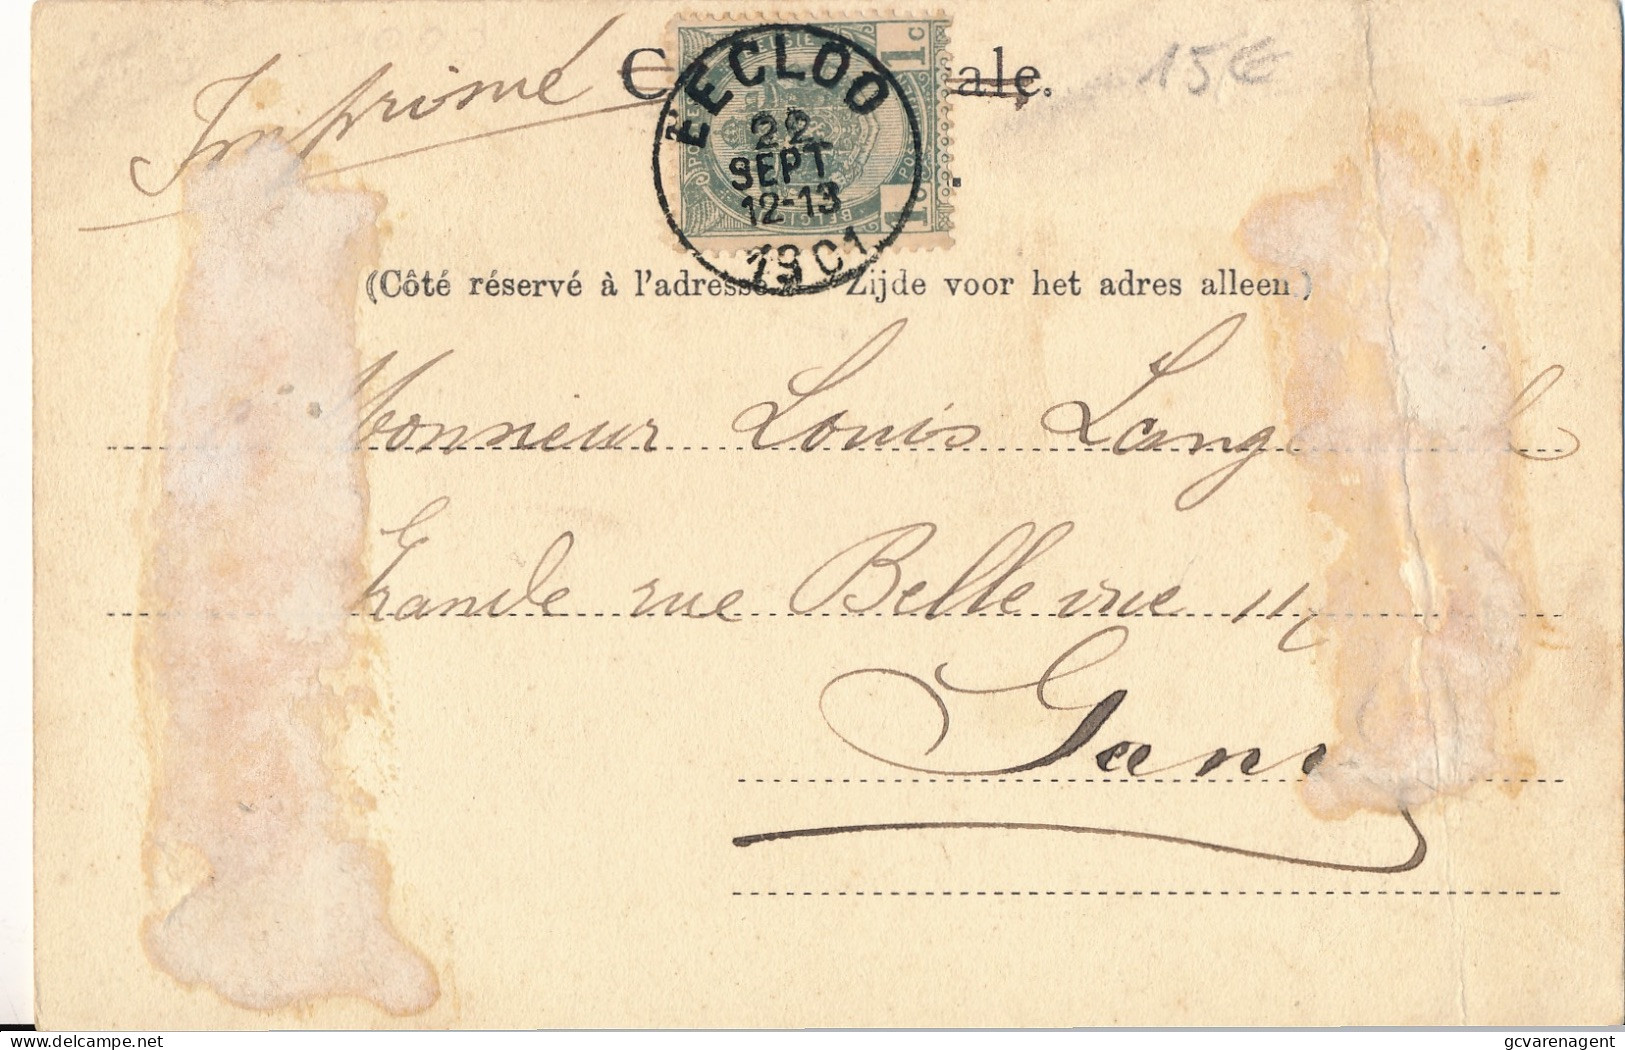 Imprimé
C ale.
15€
1c
EECLOO
22
SEPT
12-13
1901
1c
(Côté réservé à l'adresse Zijde voor het adres alleen)
Monnieur Louis Lang
Grande rue Belle vue
Gan
gcvarenagent